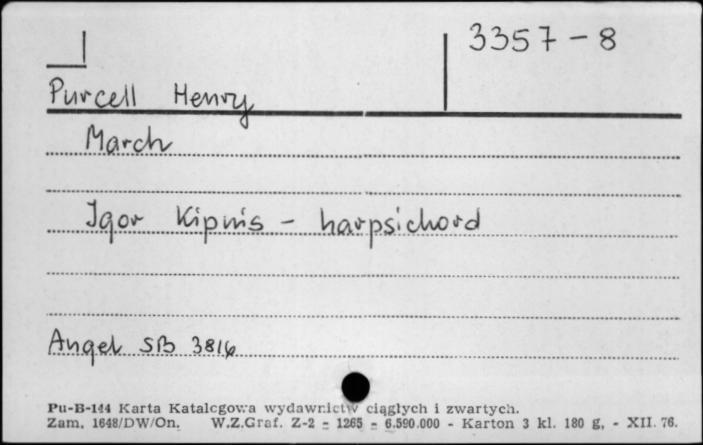 3357-8
Purcell Henry
March
Igor Kipnis - harpsichord
Angel SB 3816
Pu-B-144 Karta Katalogowa wydawnictw ciągłych i zwartych.
Zam. 1648/DW/On. W.Z.Graf. Z-2 = 1265 = 6.590.000 - Karton 3 kl. 180 g, - XII. 76.